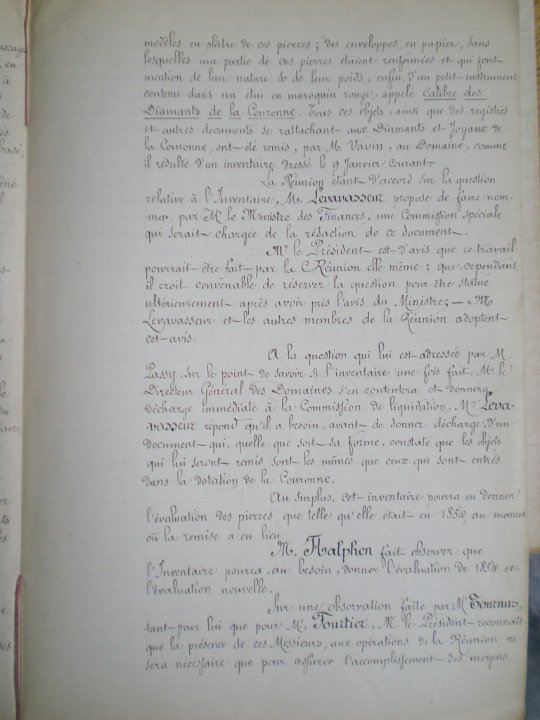 modèles en plâtre de ces pierres ; des enveloppes, en papier, dans
lesquelles une partie de ces pierres étaient renfermées et qui font
mention de leur nature & de leur poids ; enfin, d'un petit instrument
contenu dans un étui en maroquin rouge, appelé Calibre des
Diamants de la Couronne. Tous ces objets, ainsi que des registres
et autres documents se rattachant aux Diamants et Joyaux de
la Couronne, ont été remis, par M. Vavin, au Domaine, comme
il résulte d'un inventaire dressé le 9 Janvier courant.
La Réunion étant d'accord sur la question
relative à l'Inventaire, Mr. Levavasseur propose de faire nom-
mer, par Mr le Ministre des Finances, une Commission spéciale
qui serait chargée de la rédaction de ce document.
Mr le Président est d'avis que ce travail
pourrait être fait par la Réunion elle même ; que cependant,
il croit convenable de réserver la question pour être statué
ultérieurement après avoir pris l'avis du Ministre ; — M.
Levavasseur et les autres membres de la Réunion adoptent
cet avis.
A la question qui lui est adressée par M.
Passy, sur le point de savoir si l'inventaire une fois fait Mr. le
Directeur Général des Domaines s'en contentera et donnera
décharge immédiate à la Commission de liquidation, Mr. Leva-
vasseur répond qu'il a besoin, avant de donner décharge, d'un
document qui, quelle que soit sa forme, constate que les objets
qui lui seront remis sont les mêmes que ceux qui sont entrés
dans la dotation de la Couronne.
Au surplus, cet inventaire pourra ne donner
l'évaluation des pierres que telle qu'elle était en 1854, au moment
où la remise a eu lieu.
M. Halphen fait observer que
l'Inventaire pourra, au besoin, donner l'évaluation de 1854 et
l'évaluation nouvelle.
Sur une observation faite par Mr
tant pour lui que pour M. Fourtier, M. le Président reconnaît
que la présence de ces Messieurs, aux opérations de la Réunion ne
sera nécessaire que pour assurer l'accomplissement des moyens